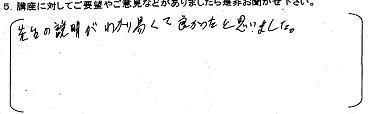 5. 講座に対してご要望やご意見などがありましたら是非お聞かせ下さい。
先生の説明がわかり易くて良かったと思いました。